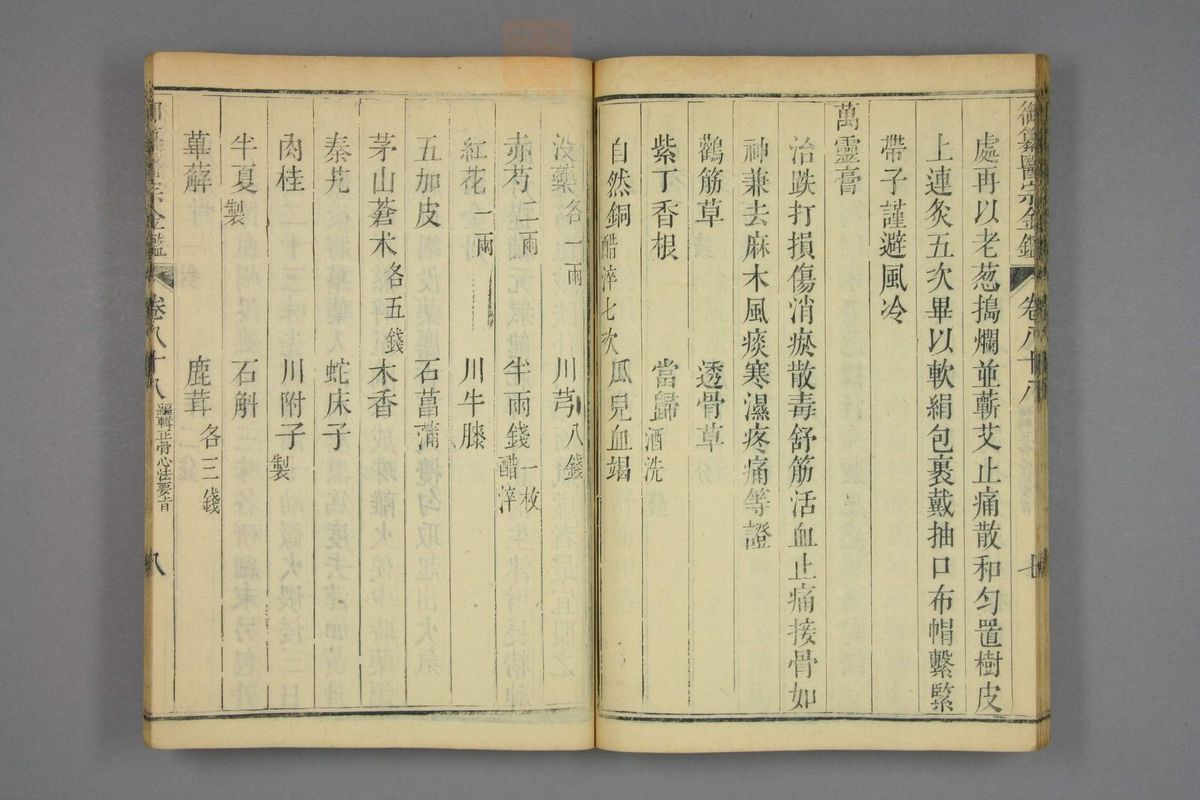 御纂醫宗金鑑 卷八十八 七
處再以老葱搗爛並蘄艾止痛散和勻置樹皮
上連灸五次畢以軟絹包裹戴抽口布帽繫緊
帶子謹避風冷
萬靈膏
治跌打損傷消瘀散毒舒筋活血止痛接骨如
神兼去麻木風痰寒濕疼痛等證
鸛筋草 透骨草
紫丁香根 當歸酒洗
自然銅醋淬七次 瓜兒血竭
沒藥各一兩 川芎八錢
赤芍二兩 半兩錢一枚醋淬
紅花一兩 川牛膝
五加皮 石菖蒲
茅山蒼术各五錢 木香
秦艽 蛇床子
肉桂 川附子製
半夏製 石斛
萆薢 鹿茸各三錢
宗金鑑 卷八十八 編輯正骨心法要旨 八